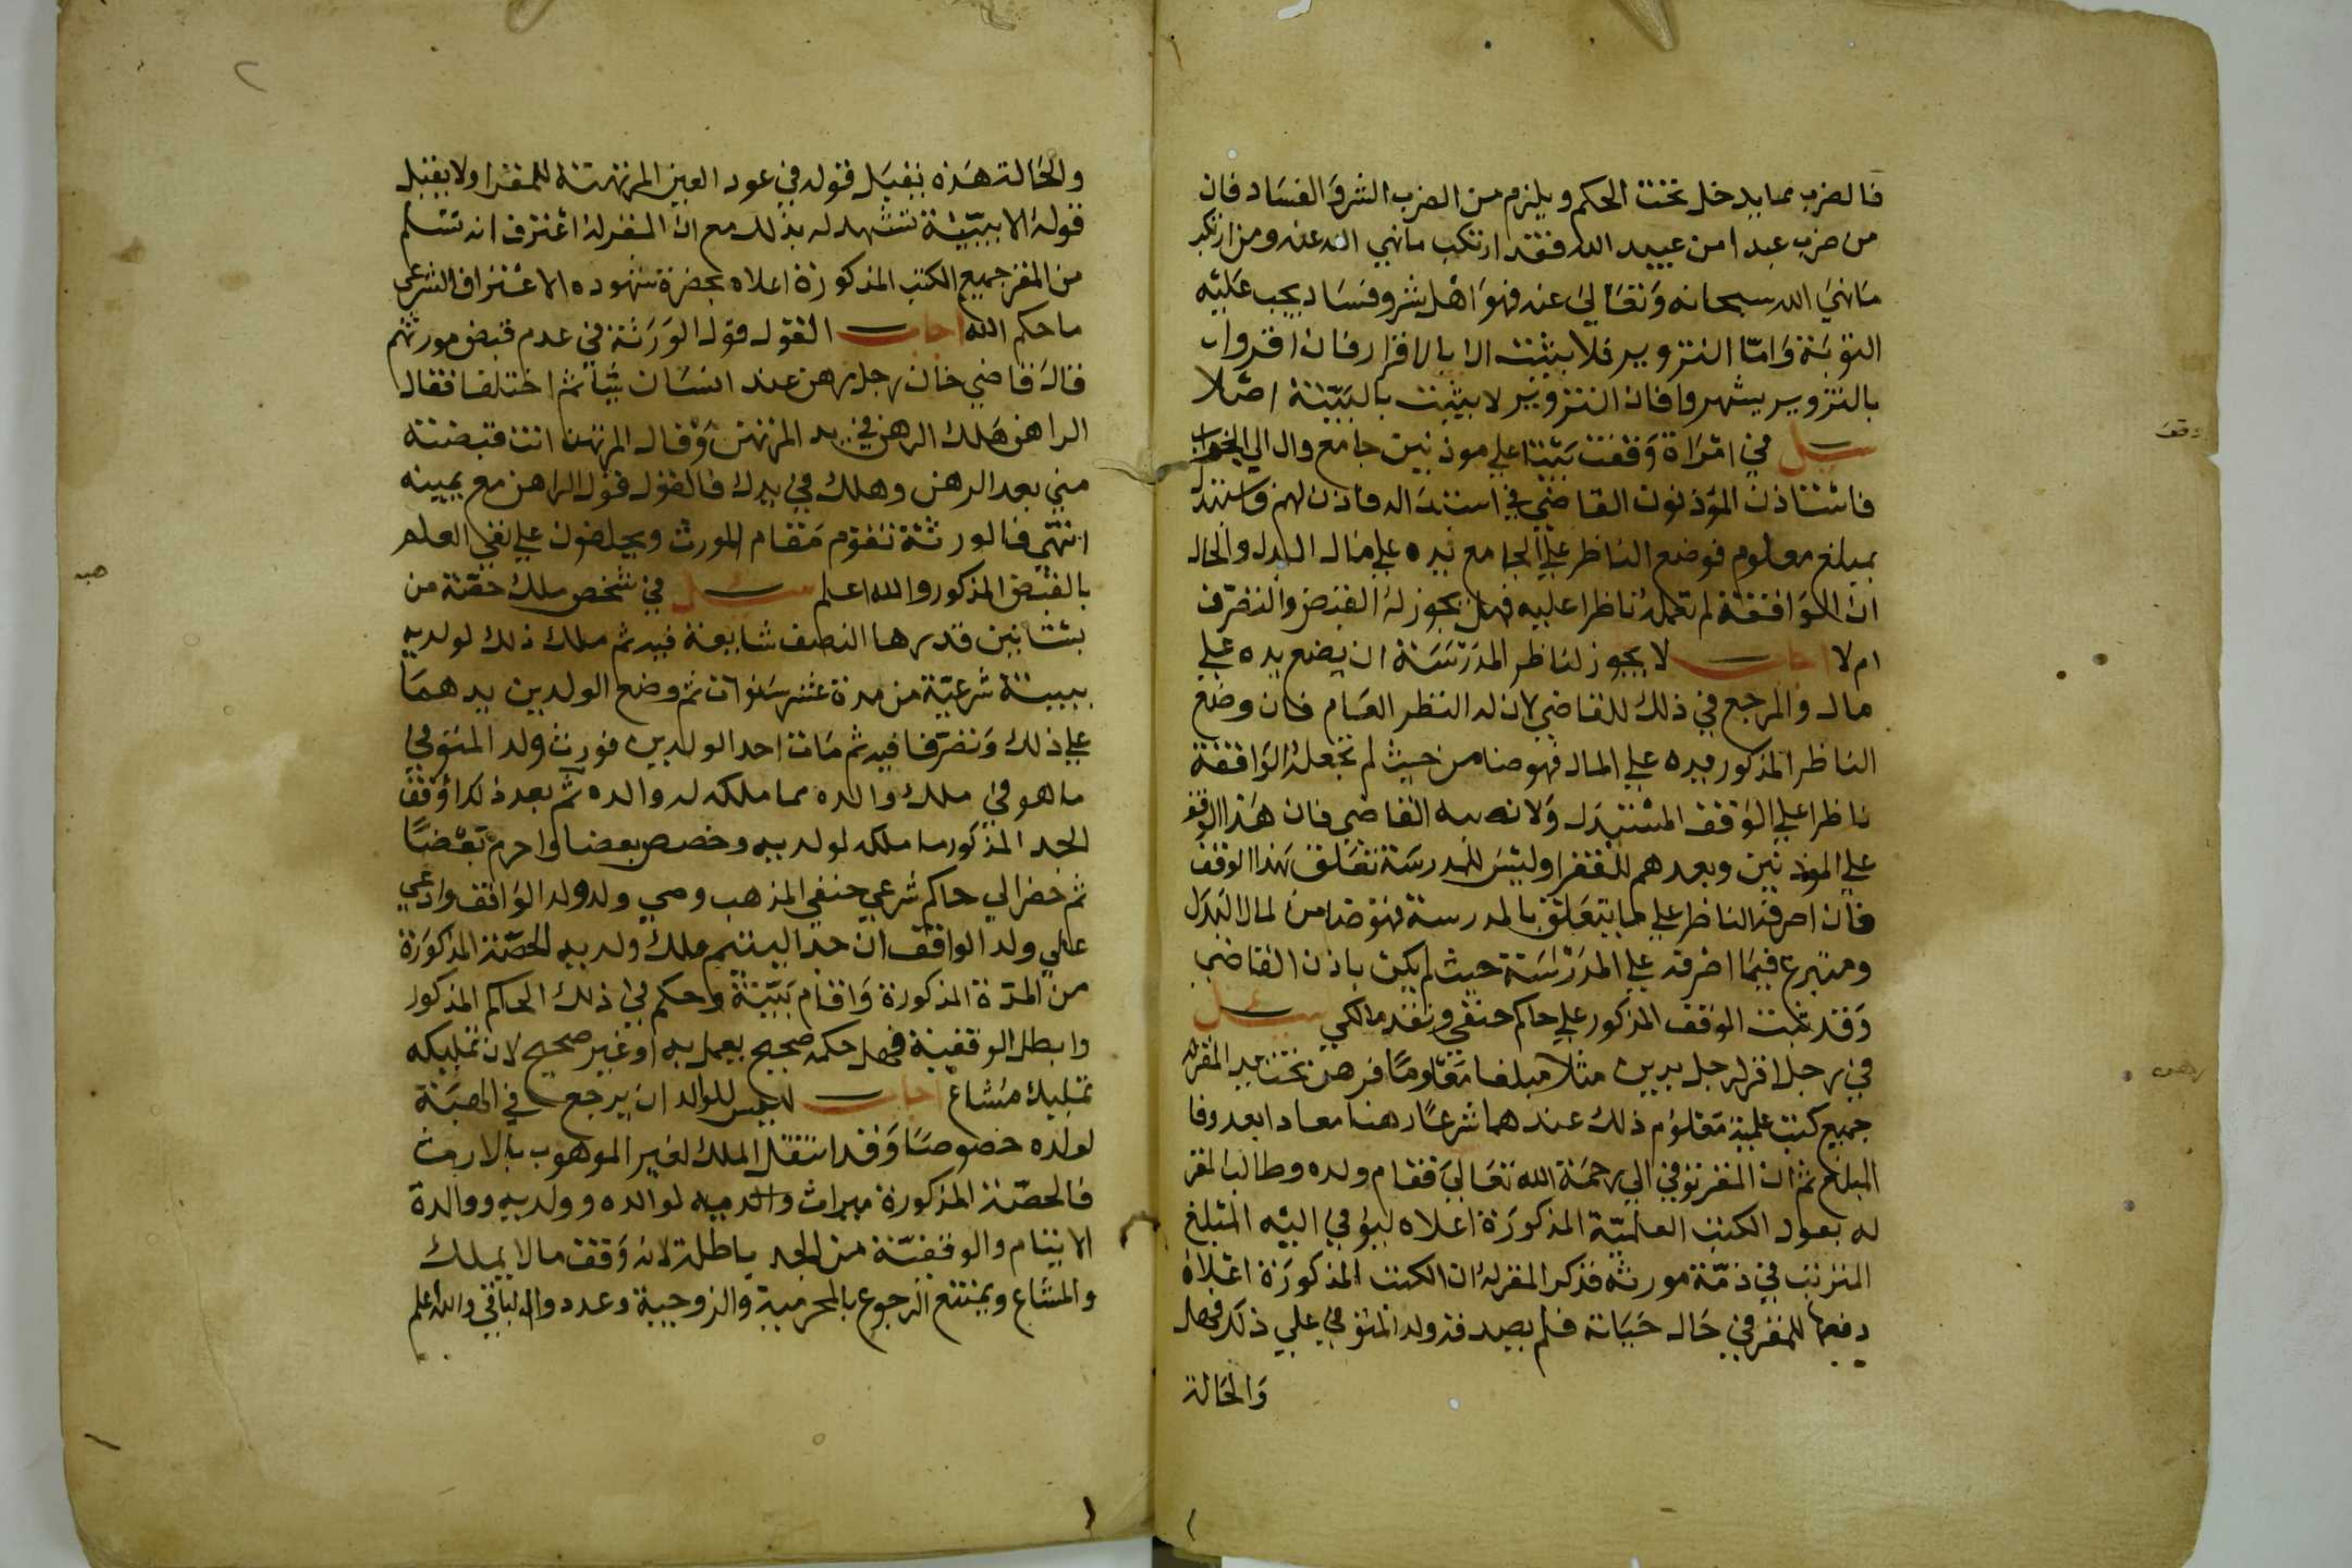 فالضرب مما يدخل تحت الحكم ويلزم من الضرب الشر والفساد فان
من ضرب عبدا من عبيد الله فقد ارتكب ما نهي الله عنه ومن ارتكب
ما نهي الله سبحانه وتعالي عنه فهو اهل شر وفساد يجب عليه
التوبة واما التزوير فلا يثبت الا بالاقرار فان اقروا
بالتزوير يشهروا فان التزوير لا يثبت بالبينة اصلا
وقف
سئل في امراة وقفت بيتا علي موذنين جامع وال الي الخراب
فاستاذن الموذنون القاضي في استبداله فاذن لهم فاستبدل
بمبلغ معلوم فوضع الناظر علي الجامع يده علي مال البدل والحال
ان الواقفة لم تجعله ناظرا عليه فهل يجوز له القبض والتصرف
ام لا اجاب لا يجوز لناظر المدرسة ان يضع يده علي
مال والمرجع في ذلك للقاضي لان له النظر العام فان وضع
الناظر المذكور يده علي المال فهو ضامن حيث لم تجعله الواقفة
ناظرا علي الوقف المستبدل ولا نصبه القاضي فان هذا الوقف
علي الموذنين وبعدهم للفقرا وليس للمدرسة تعلق بهذا الوقف
فان اصرفه الناظر علي ما يتعلق بالمدرسة فهو ضامن لمال البدل
ومتبرع فيما اصرفه علي المدرسة حيث لم يكن باذن القاضي
وقد ثبت الوقف المذكور علي حاكم حنفي ونفذ مالكي سئل
رهن
في رجل اقر لرجل بدين مثلا مبلغا معلوما فرهن تحت يد المقر له
جميع كتب علمية معلوم ذلك عندهما شرعا رهنا معادا بعد وفا
المبلغ ثم ان المقر توفي الي رحمة الله تعالي فقام ولده وطالب المقر
له بعود الكتب العلمية المذكورة اعلاه ليوفي اليه المبلغ
المترتب في ذمة مورثه فذكر المقر له ان الكتب المذكورة اعلاه
دفعها للمقر في حال حياته فلم يصدقه ولد المتوفي علي ذلك فهل
والحالة
٢
والحالة هذه يقبل قوله في عود العين المرتهنة للمقر او لا يقبل
قوله الا ببينة تشهد له بذلك مع ان المقر له اعترف انه تسلم
من المقر جميع الكتب المذكورة اعلاه بحضرة شهوده الاعتراف الشرعي
ما حكم الله اجاب القول قول الورثة في عدم قبض مورثهم
قال قاضي خان رجل رهن عند انسان شيا ثم اختلفا فقال
الراهن هلك الرهن في يد المرتهن وقال المرتهن انت قبضته
مني بعد الرهن وهلك في يدك فالقول قول الراهن مع يمينه
انتهي فالورثة تقوم مقام المورث ويحلفون علي نفي العلم
هبه
بالقبض المذكور والله اعلم سئل في شخص ملك حصة من
بستانين قدرها النصف شايعة فيه ثم ملك ذلك لولديه
ببينة شرعية من مدة عشر سنوات ثم وضع الولدين يدهما
علي ذلك وتصرفا فيه ثم مات احد الولدين فورث ولد المتوفي
ما هو في ملك والده مما ملكه له والده ثم بعد ذلك اوقف
الجد المذكور ما ملكه لولديه وخصص بعضا واحرم بعضا
ثم حضر الي حاكم شرعي حنفي المذهب وصي ولد ولد الواقف وادعي
علي ولد الواقف ان جد اليتيم ملك ولديه الحصة المذكورة
من المدة المذكورة واقام بينة وحكم في ذلك الحاكم المذكور
وابطل الوقفية فهل حكمه صحيح يعمل به او غير صحيح لان تمليكه
تمليك مشاع اجاب ليس للوالد ان يرجع في الهبة
لولده خصوصا وقد انتقل الملك لغير الموهوب بالارث
فالحصة المذكورة ميراث والدميه لوالده وولديه ووالدة
الايتام والوقفية من الجد باطلة لانه وقف ما لا يملك
والمشاع ويمتنع الرجوع بالمحرمية والزوجية وعدد والباقي والله اعلم